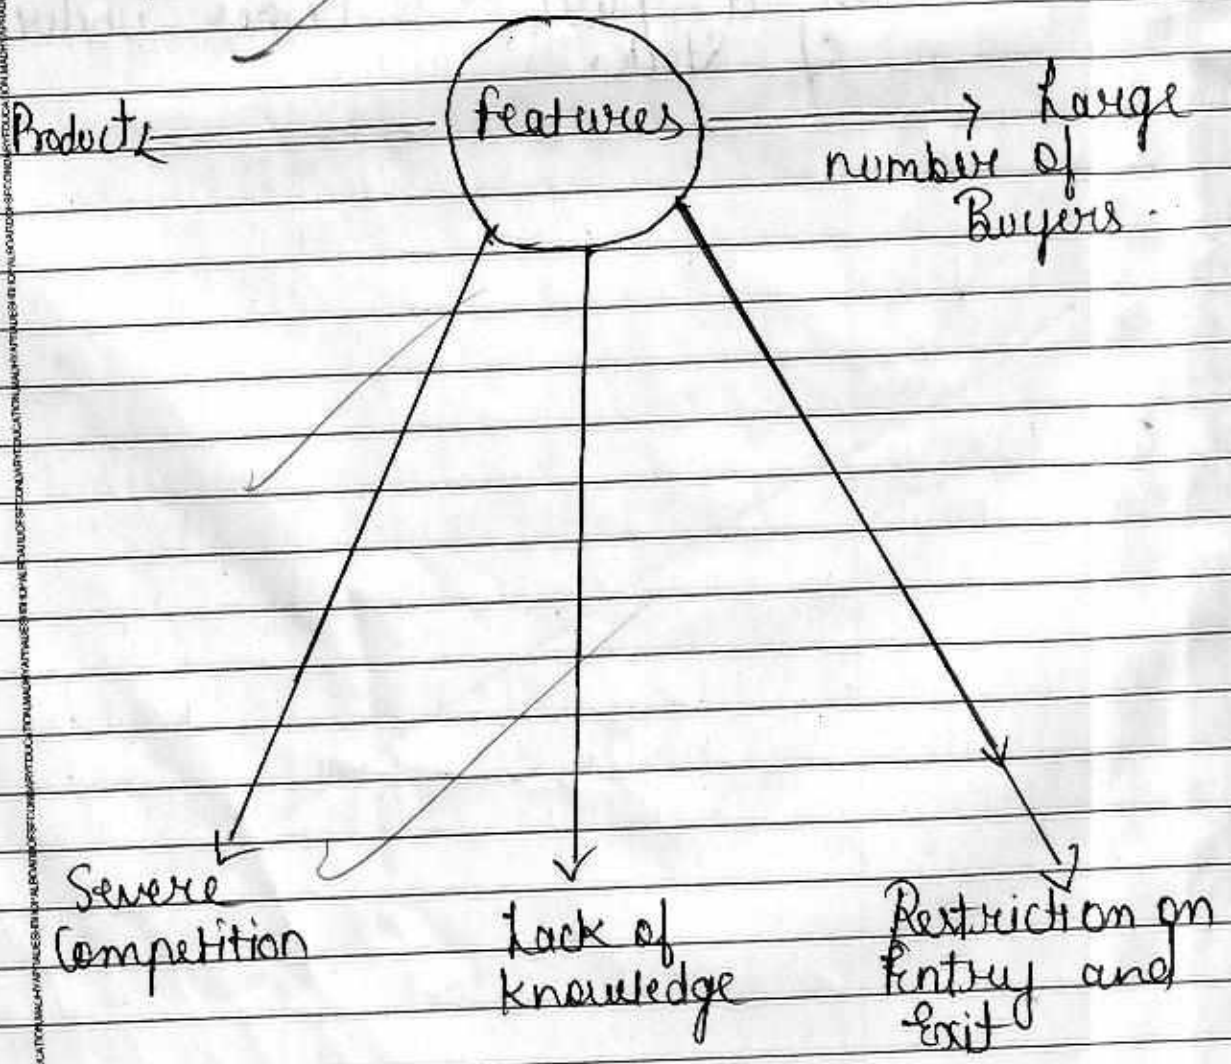 features
Product
Large
number of
Buyers.
Severe
Competition
Lack of
knowledge
Restriction on
Entry and
Exit